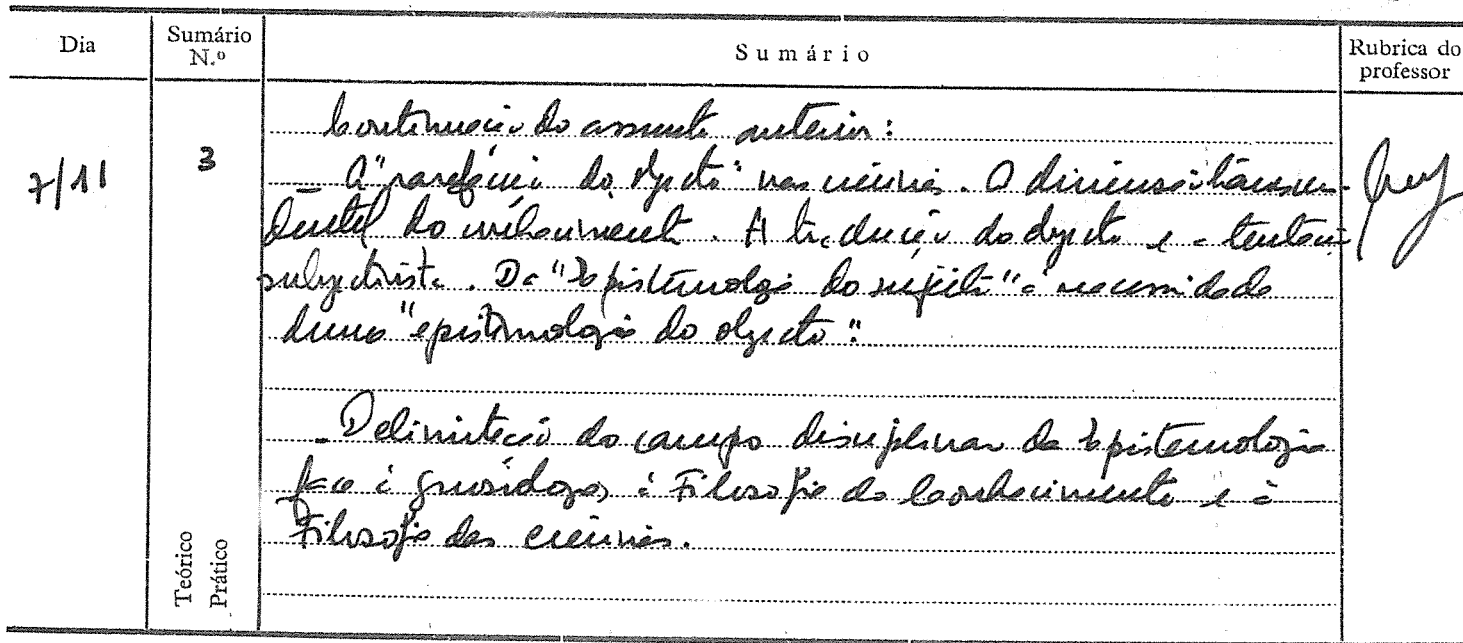 Dia
Sumário N.º
Sumário
Rubrica do professor
7/11
3
Continuação do assunto anterior:
- A "rarefacção do objecto" nas ciências. A dimensão transcen-
dental do conhecimento. A tradução do objecto e a tentação
subjectivista. Da "Epistemologia do sujeito" à necessidade
duma "epistemologia do objecto".
- Delimitação do campo disciplinar da Epistemologia
face à gnosiologia, à Filosofia do Conhecimento e à
Filosofia das ciências.
Teórico
Prático